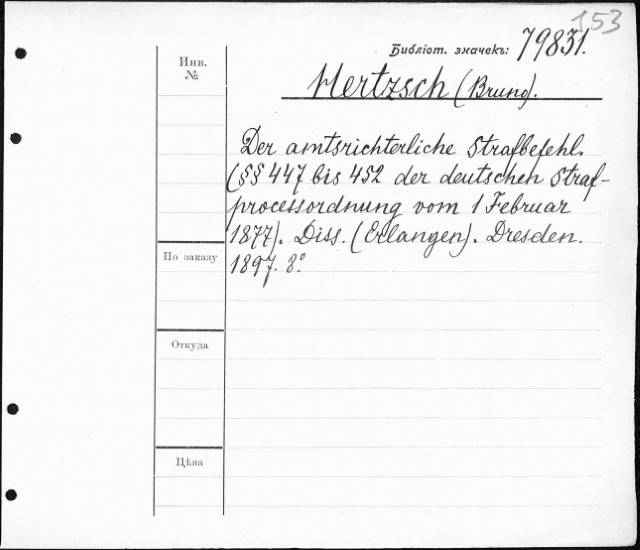 153
Библіот. значекъ: 79831.
Инв.
№
Hertzsch (Bruno).
Der amtsrichterliche Strafbefehl.
(§§ 447 bis 452 der deutschen Straf-
processordnung vom 1 Februar
1877). Diss. (Erlangen). Dresden.
1897. 8°
По заказу
Откуда
Цѣна